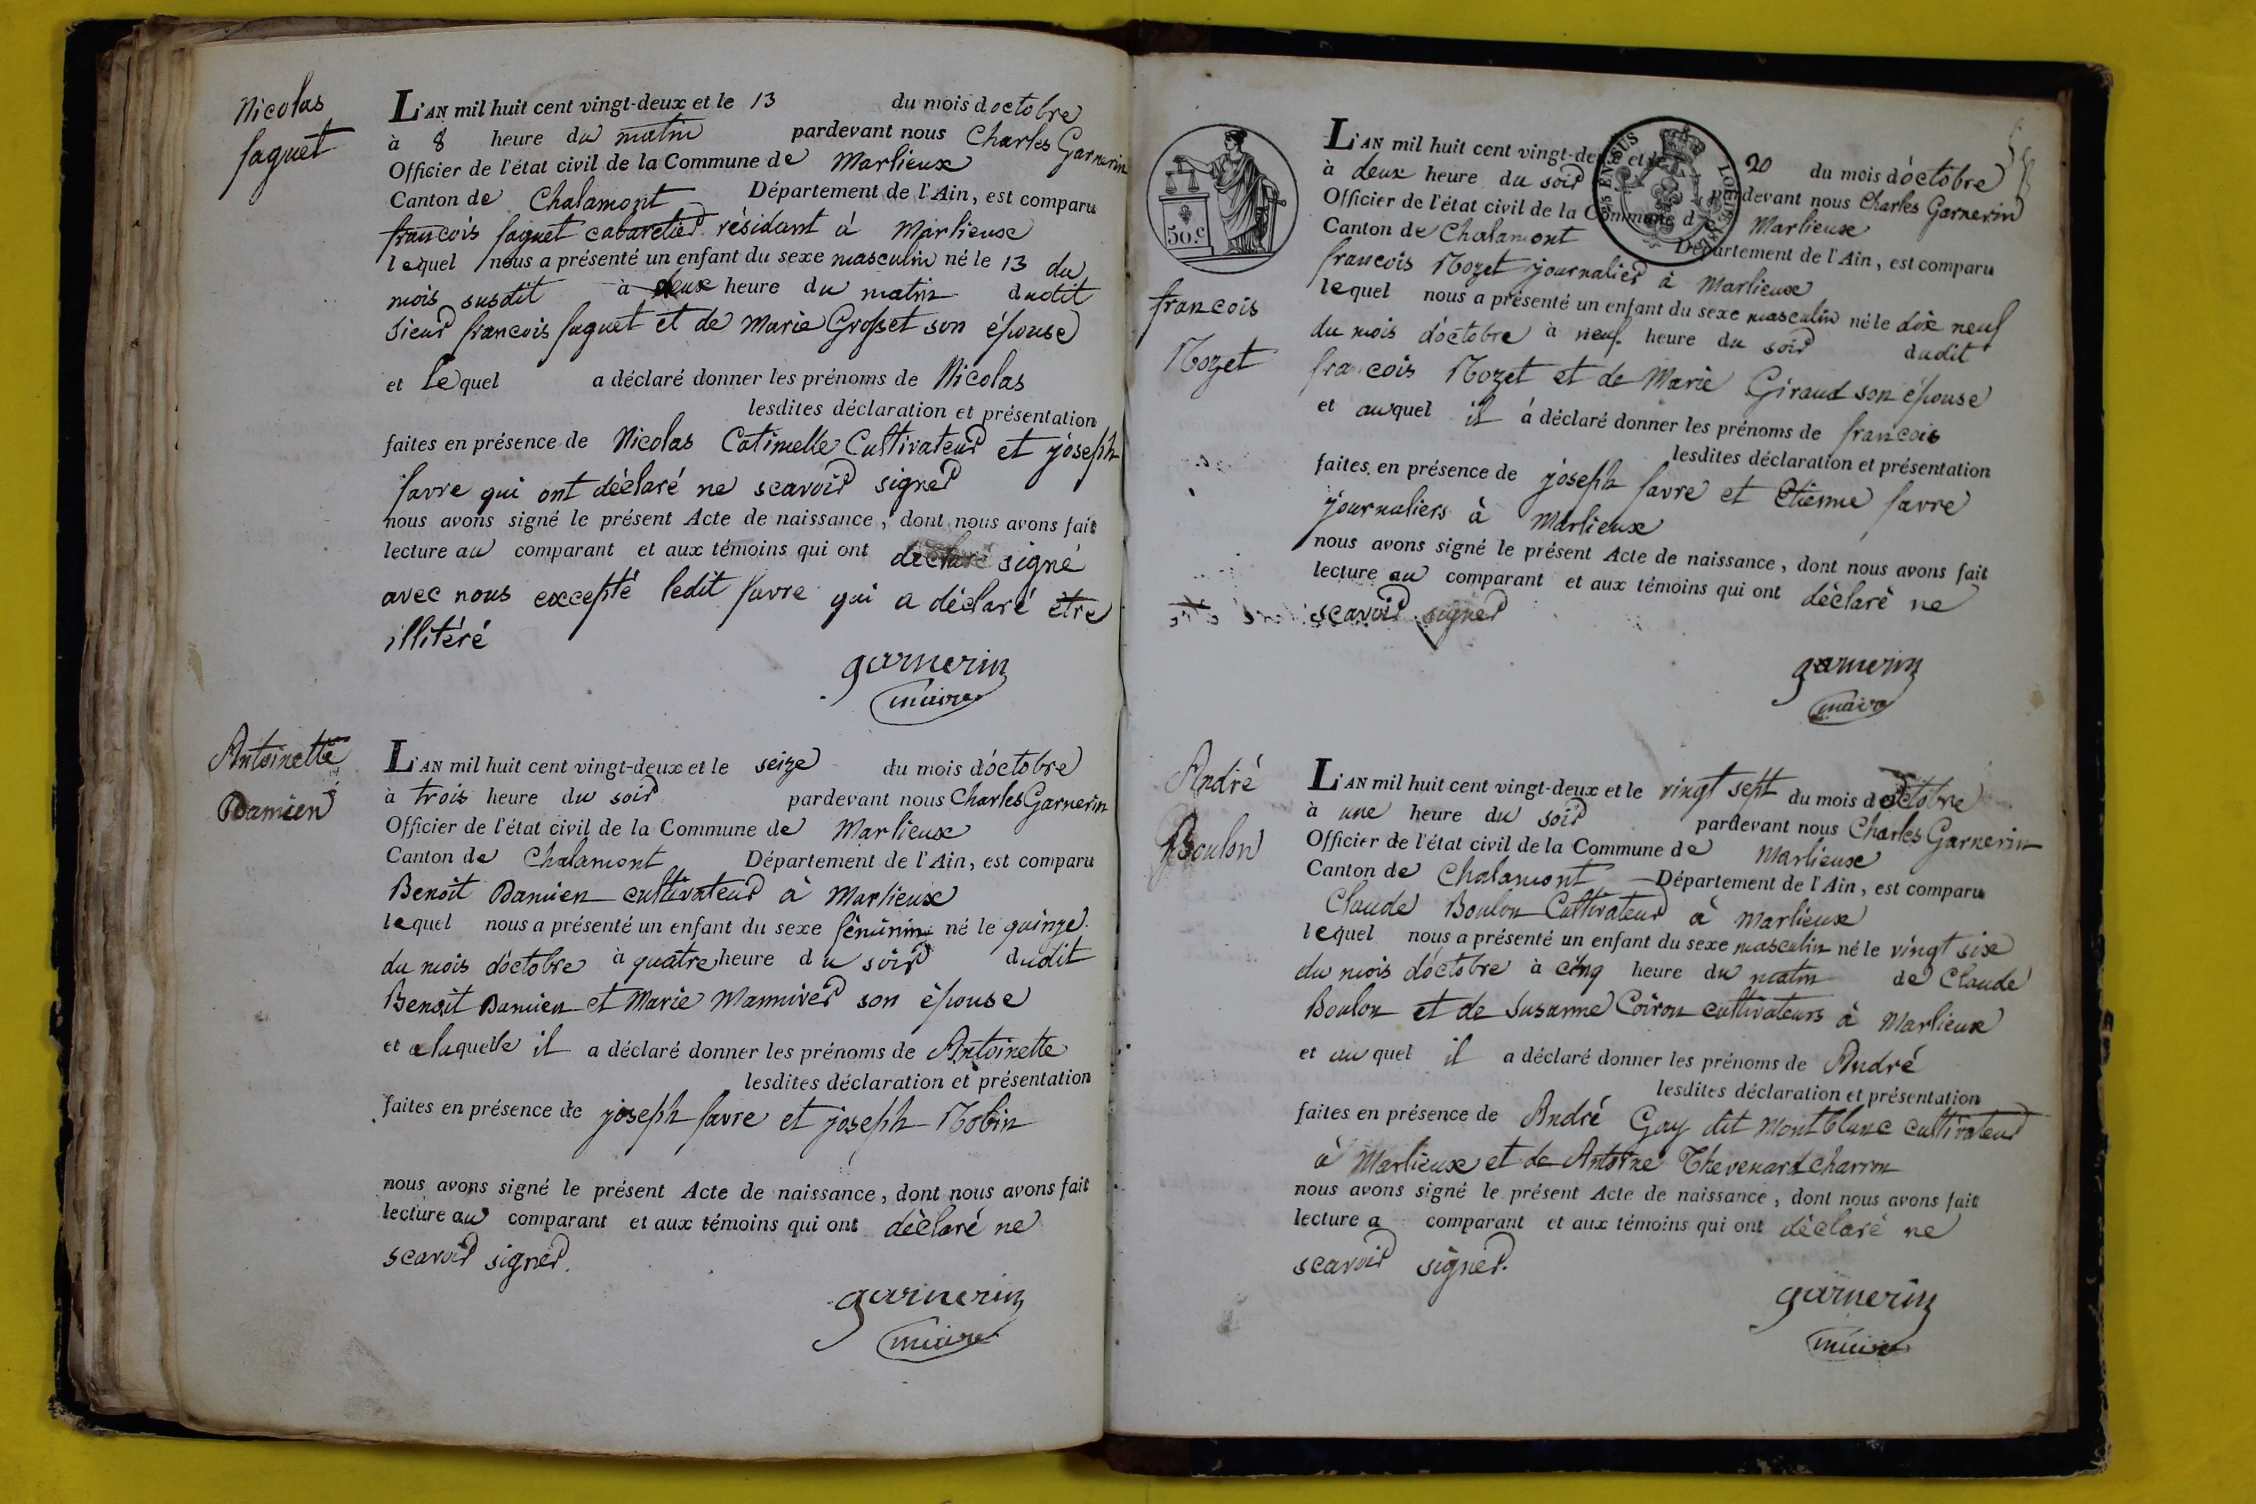 Nicolas
faguet
L'AN mil huit cent vingt-deux et le 13 du mois doctobre
à 8 heure du matin pardevant nous Charles Garnerin
Officier de l'état civil de la Commune de Marlieux
Canton de Chalamont Département de l'Ain, est comparu
francois faguet cabaretier résidant à Marlieux
lequel nous a présenté un enfant du sexe masculin né le 13 du
mois susdit à deux heure du matin dudit
Sieur francois faguet et de Marie Grosset son épouse
et lequel a déclaré donner les prénoms de Nicolas
lesdites déclaration et présentation
faites en présence de Nicolas Catimelle Cultivateur et joseph
favre qui ont déclaré ne scavoir signer
nous avons signé le présent Acte de naissance, dont nous avons fait
lecture au comparant et aux témoins qui ont déclaré signé
avec nous excepté ledit favre qui a déclaré être
illitéré
garnerin
maire
Antoinette
Damien
L'AN mil huit cent vingt-deux et le seize du mois d'octobre
à trois heure du soir pardevant nous Charles Garnerin
Officier de l'état civil de la Commune de Marlieux
Canton de Chalamont Département de l'Ain, est comparu
Benoit Damien cultivateur à Marlieux
lequel nous a présenté un enfant du sexe féminin né le quinze
du mois d'octobre à quatre heure du soir dudit
Benoit Damien et Marie Mannived son épouse
et a laquelle il a déclaré donner les prénoms de Antoinette
lesdites déclaration et présentation
faites en présence de joseph favre et joseph Robin
nous avons signé le présent Acte de naissance, dont nous avons fait
lecture au comparant et aux témoins qui ont déclaré ne
scavoir signer.
garnerin
maire
50.c
francois
Rozet
L'AN mil huit cent vingt-deux et le 20 du mois d'octobre
à deux heure du soir pardevant nous Charles Garnerin
Officier de l'état civil de la Commune de Marlieux
Canton de Chalamont Département de l'Ain, est comparu
francois Rozet journalier à Marlieux
lequel nous a présenté un enfant du sexe masculin né le dix neuf
du mois d'octobre à neuf heure du soir dudit
francois Rozet et de Marie Giraud son épouse
et auquel il a déclaré donner les prénoms de francois
lesdites déclaration et présentation
faites en présence de joseph favre et Etienne favre
journaliers à Marlieux
nous avons signé le présent Acte de naissance, dont nous avons fait
lecture au comparant et aux témoins qui ont déclaré ne
scavoir signer
garnerin
maire
André
Boulon
L'AN mil huit cent vingt-deux et le vingt sept du mois doctobre
à une heure du soir pardevant nous Charles Garnerin
Officier de l'état civil de la Commune de Marlieux
Canton de Chalamont Département de l'Ain, est comparu
Claude Boulon Cultivateur à Marlieux
lequel nous a présenté un enfant du sexe masculin né le vingt six
du mois d'octobre à cinq heure du matin de Claude
Boulon et de Susanne Coiron cultivateurs à Marlieux
et au quel il a déclaré donner les prénoms de André
lesdites déclaration et présentation
faites en présence de André Gay dit Montblanc cultivateur
à Marlieux et de Antoine Thevenard charron
nous avons signé le présent Acte de naissance, dont nous avons fait
lecture a comparant et aux témoins qui ont déclaré ne
scavoir signer.
garnerin
maire